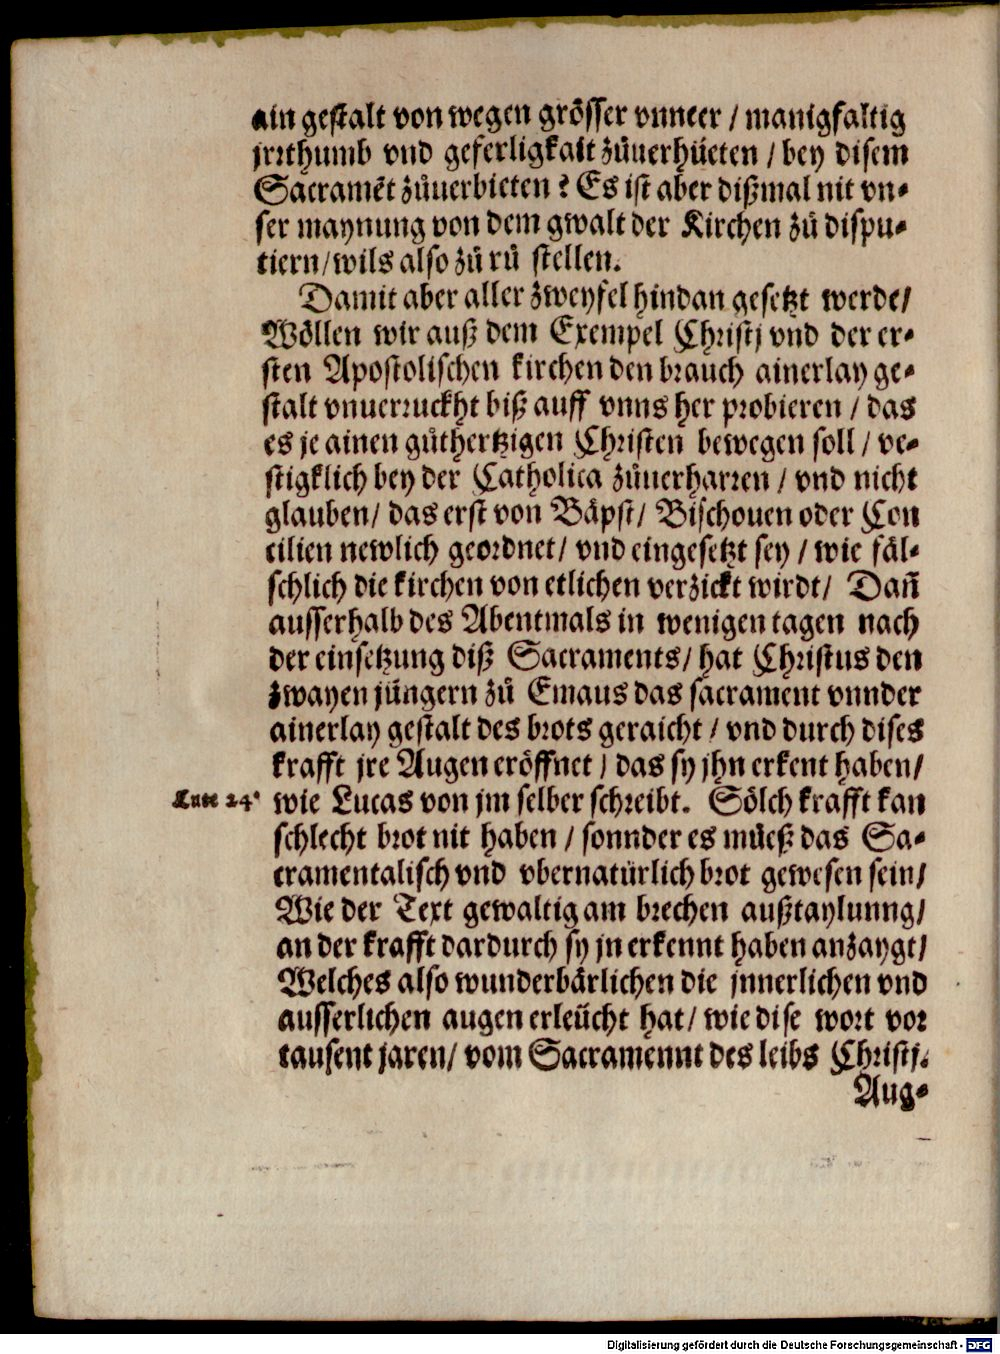 ain gestalt von wegen grösser vnneer / manigfaltig
jrrthumb vnd geferligkait zůuerhüeten / bey disem
Sacramēt zůuerbieten? Es ist aber dißmal nit vn⸗
ser maynung von dem gwalt der Kirchen zů dispu⸗
tiern/wils also zů rů stellen.
Damit aber aller zweyfel hindan gesetzt werde/
Wöllen wir auß dem Exempel Christj vnd der er⸗
sten Apostolischen kirchen den brauch ainerlay ge⸗
stalt vnuerruckht biß auff vnns her probieren / das
es je ainen gůthertzigen Christen bewegen soll / ve⸗
stigklich bey der Catholica zůuerharren / vnd nicht
glauben/ das erst von Bäpst/ Bischouen oder Con
cilien newlich geordnet/ vnd eingesetzt sey / wie fäl⸗
schlich die kirchen von etlichen verzickt wirdt/ Dañ
ausserhalb des Abentmals in wenigen tagen nach
der einsetzung diß Sacraments/ hat Christus den
zwayen jüngern zů Emaus das sacrament vnnder
ainerlay gestalt des brots geraicht / vnd durch dises
krafft jre Augen eröffnet / das sy jhn erkent haben/
Luce 24.
wie Lucas von jm selber schreibt. Sölch krafft kan
schlecht brot nit haben / sonnder es müeß das Sa⸗
cramentalisch vnd vbernatürlich brot gewesen sein/
Wie der Text gewaltig am brechen außtaylunng/
an der krafft dardurch sy jn erkennt haben anzaygt/
Welches also wunderbärlichen die jnnerlichen vnd
ausserlichen augen erleücht hat/ wie dise wort vor
tausent jaren/ vom Sacramennt des leibs Christj.
Aug⸗
Digitalisierung gefördert durch die Deutsche Forschungsgemeinschaft - DFG